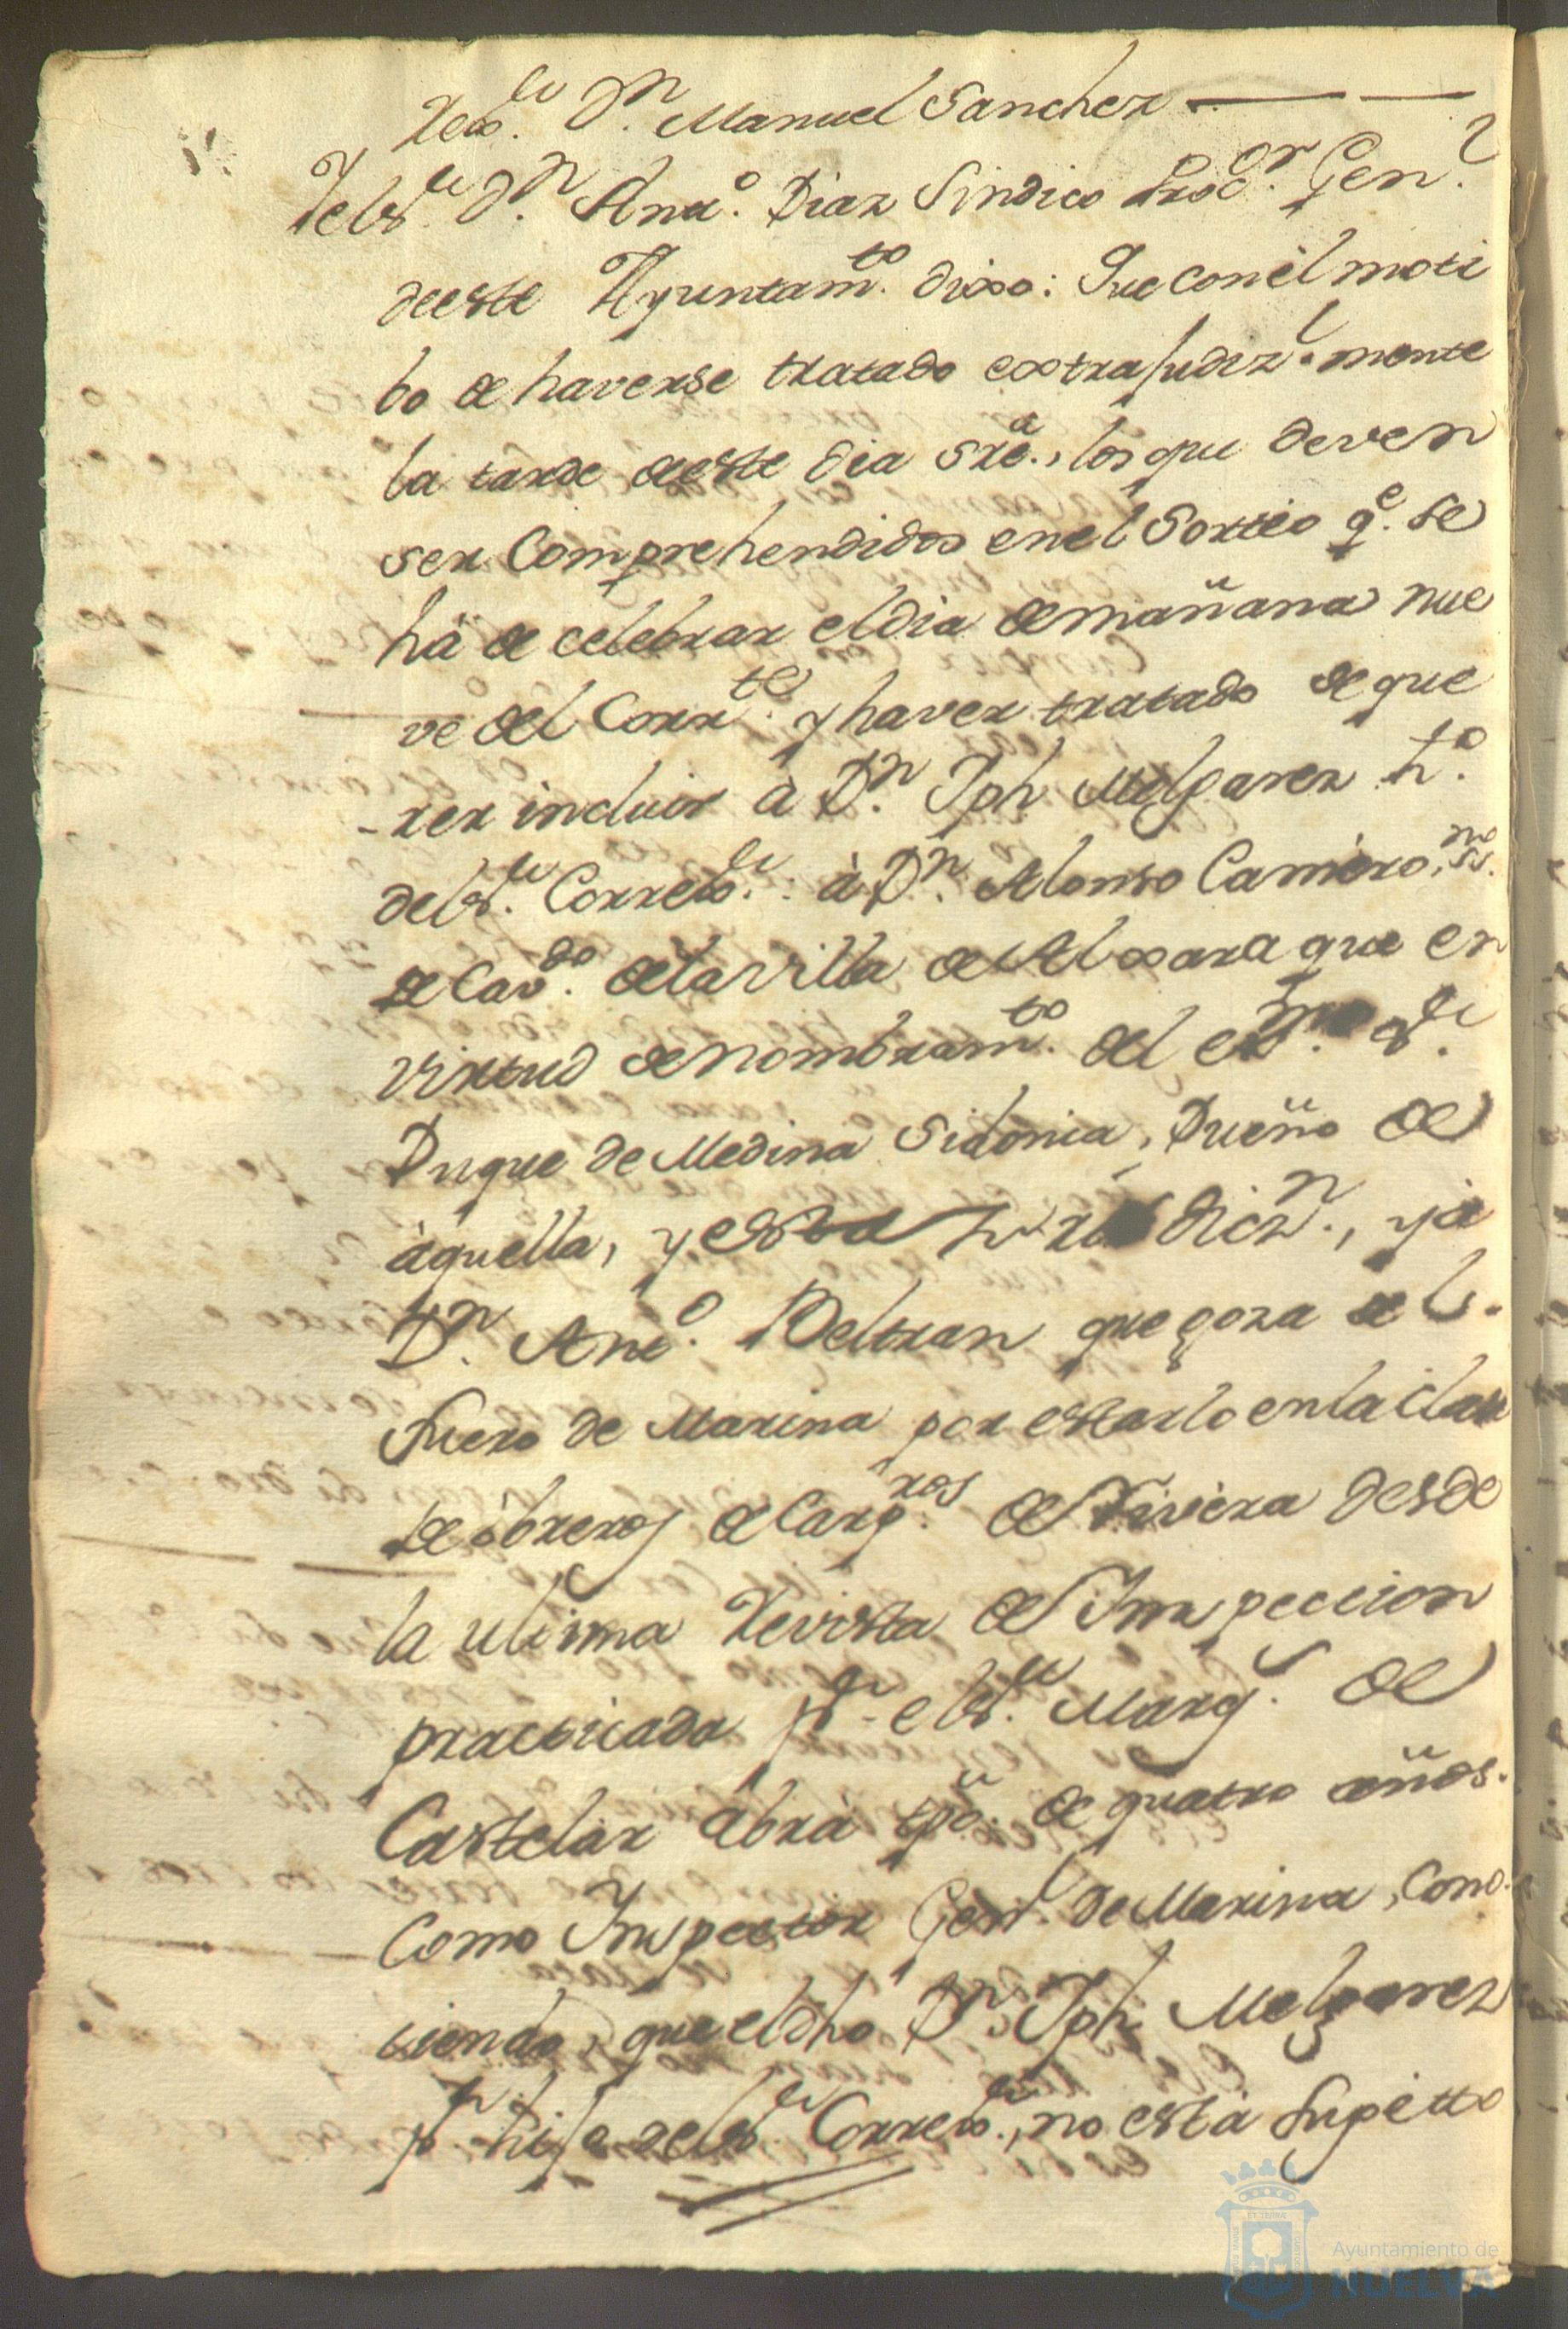 Rexr. Dn. Manuel Sanchez
Y el Sr. Dn. Anto. Diaz Sindico Procor. Genl.
deeste Ayuntamto. dixo: Que con el moti
bo de haverse tratado extrajudizl.mente
la tarde deeste dia sre., los que deven
ser Comprehendidos enel Sorteo qe. se
hà de celebrar eldia demañana nue
ve del Corrte. y haver tratado de que
-rer incluir à Dn. Jph Melgarez ho.
del Sr. Correxr.: à Dn. Alonso Camiero, ssno.
de Cavdo. dela villa de Alxaraque en
virtud denombramto. del exmo. Sr.
Duque de Medina Sidonia, Dueño de
àquella, y esta Jurisdicn., y à
Dn. Anto. Beltran que goza del
fuero de Marina por estarlo enla clase
de òbreros de Carpros. de Rivera desde
la ultima Revista de Inspeccion
practicada pr. el Sr. Marqs. de
Castelar abrà tpo. de quatro años.
Como Inspector Genl. de Marina, Cono-
siendo, que eldho Dn. Jph Melgarez
pr. hijo del Sr. Correxr., no està sugetto
Ayuntamiento de
HUELVA